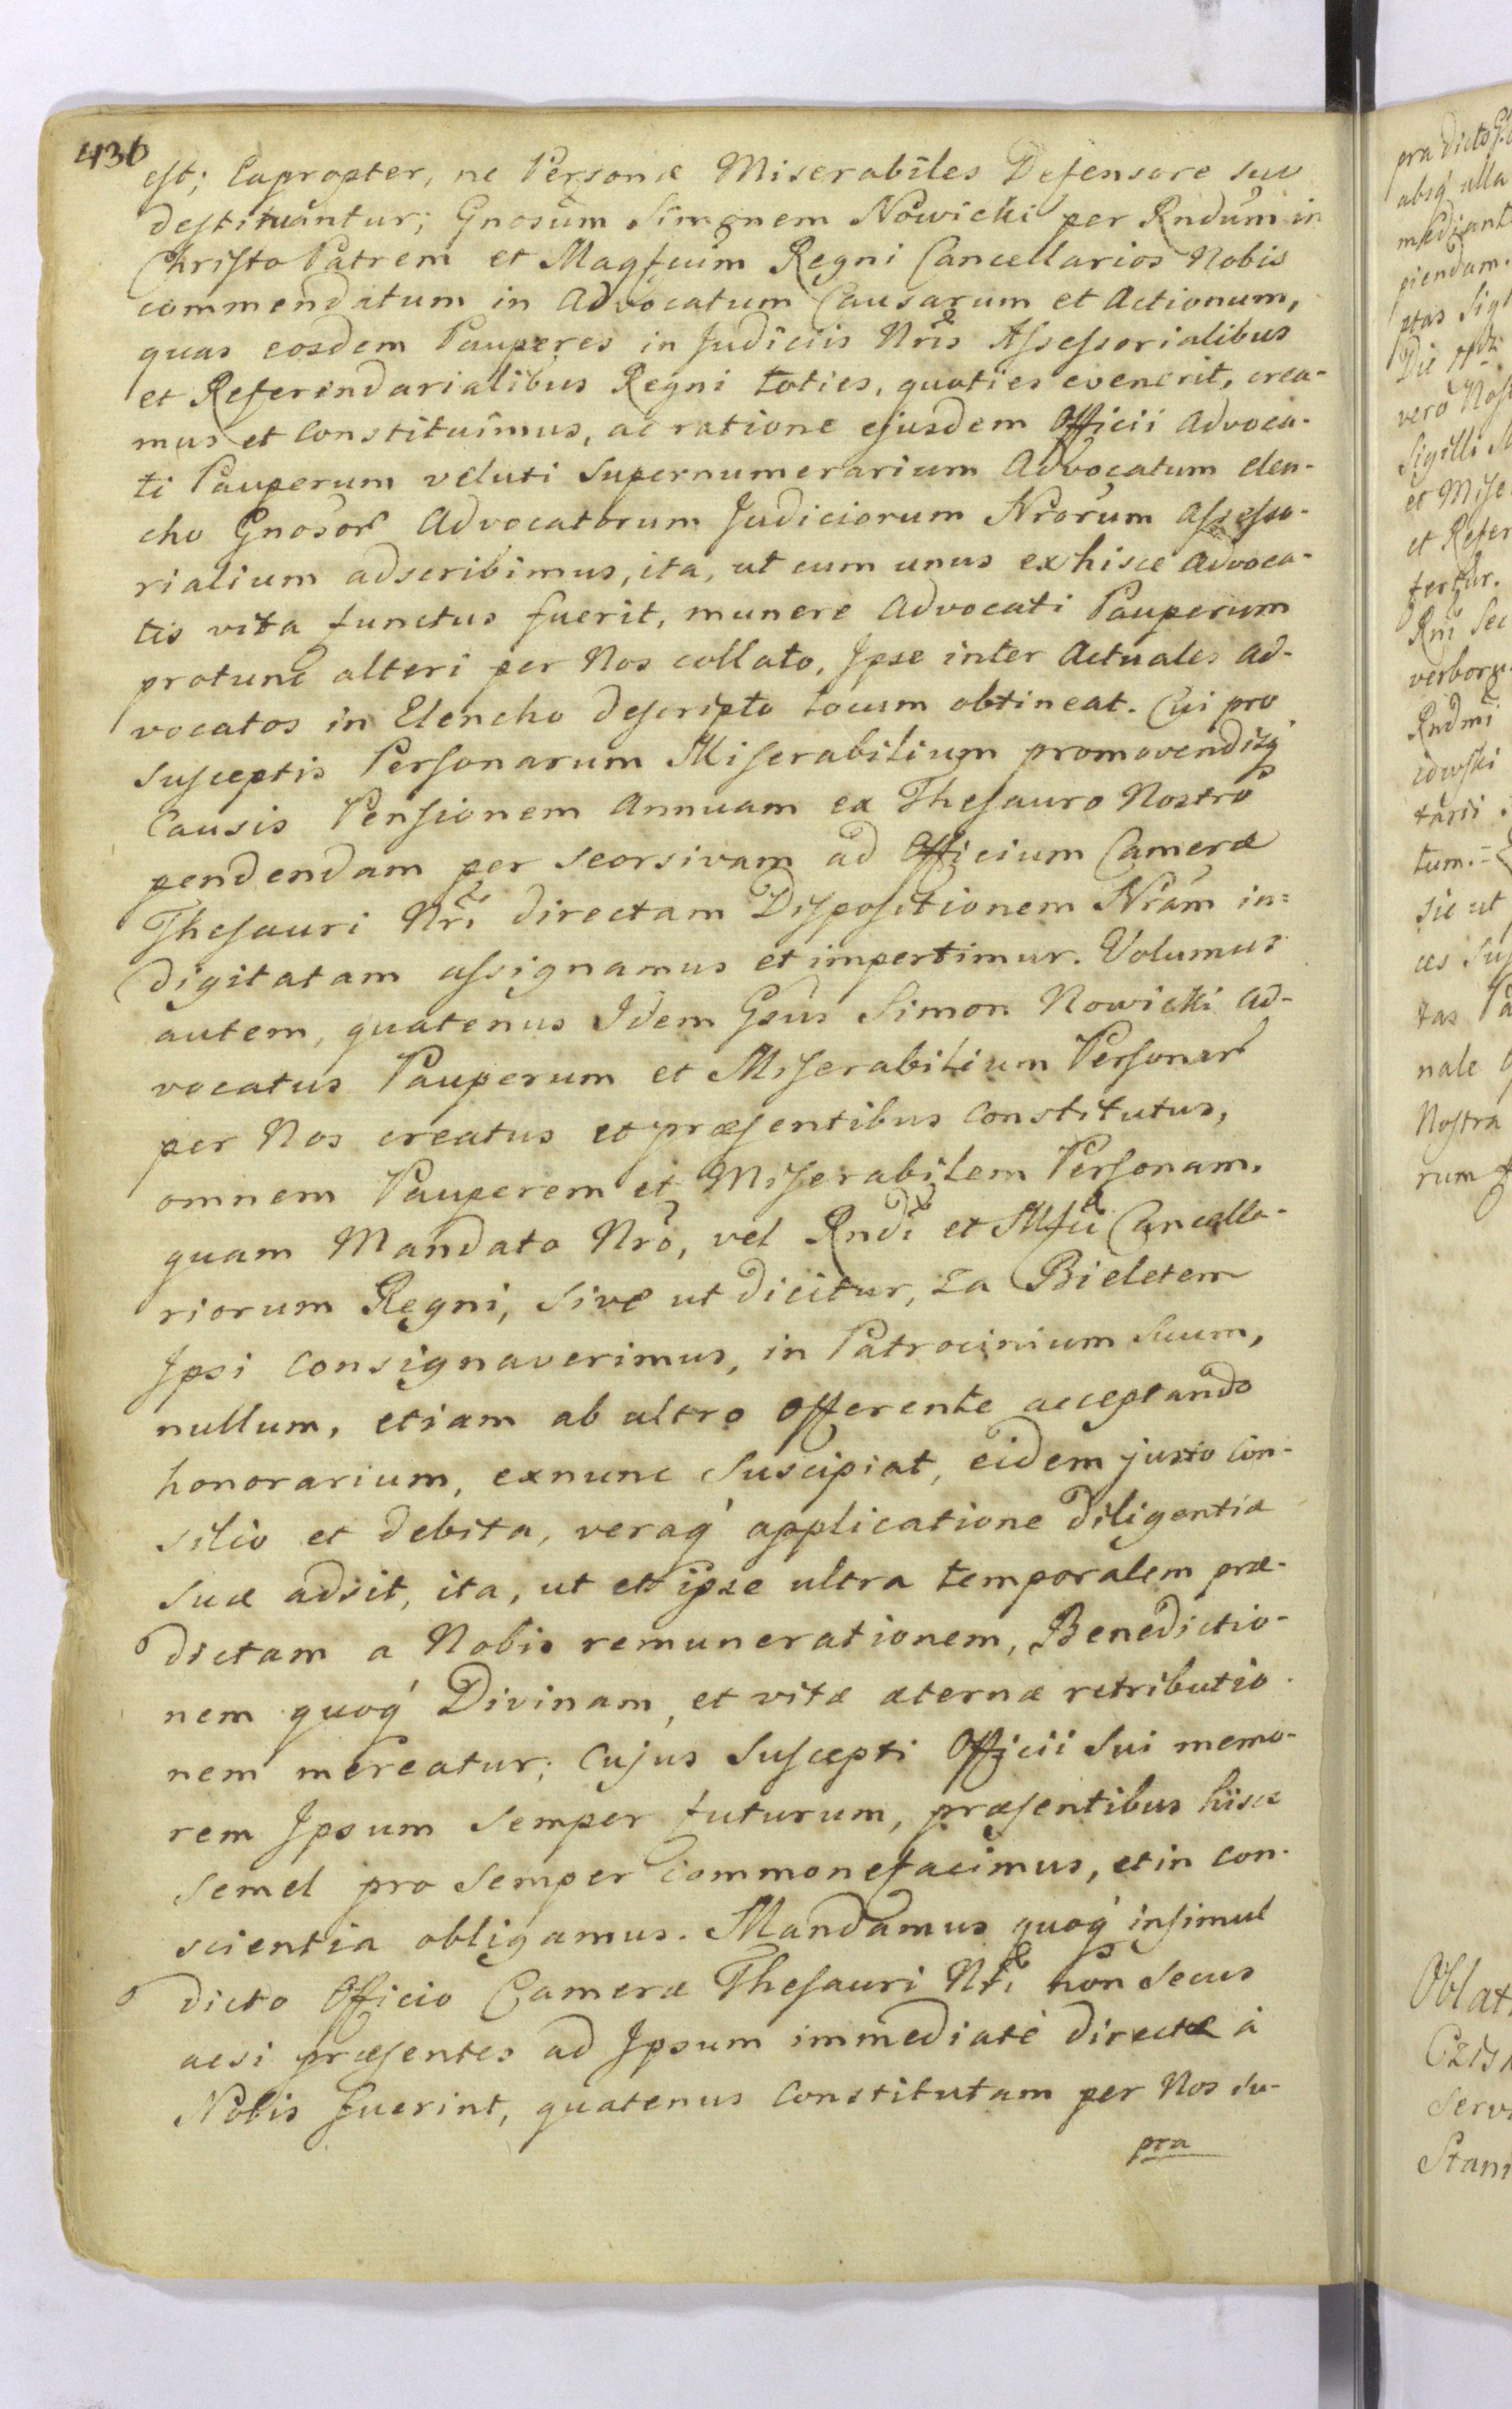 436
est; Eapropter, ne Personæ Miserabiles Defensore suo
destituantur; Gnosum Simonem Nowicki per Rndum in
Christo Patrem et Magfcum Regni Cancellarios Nobis
commendatum in Advocatum Causarum et Actionum,
quas eosdem Pauperes in Judiciis Nris Assessorialibus
et Referendarialibus Regni toties, quoties evenerit, crea-
mus et Constituimus, ac ratione ejusdem Officii Advoca-
ti Pauperum veluti Supernumerarium Advocatum elen-
cho Gnosor Advocatorum Judiciorum Nrorum Assesso-
rialium adscribimus, ita, ut cum unus ex hisce Advoca-
tis vita functus fuerit, munere Advocati Pauperum
protunc alteri per Nos collato, Ipse inter Actuales Ad-
vocatos in Elencho descripto locum obtineat. Cui pro
susceptis Personarum Miserabilium promovendisq
Causis Pensionem Annuam ex Thesauro Nostro
pendendam per seorsivam ad Officium Cameræ
Thesauri Nri directam Dispositionem Nram in=
digitatam assignamus et impertimur. Volumus
autem, quatenus Idem Gsus Simon Nowicki Ad-
vocatus Pauperum et Miserabilium Personar
per Nos creatus et præsentibus Constitutus,
omnem Pauperem et Miserabilem Personam,
quam Mandato Nro, vel Rndi et Mfci Cancella-
riorum Regni, sive ut dicitur, za Bieletem
Ipsi Consignaverimus, in Patrocinium Suum,
nullum, etiam ab ultro offerente acceptando
honorarium, exnunc Suscipiat, eidem justo Con-
silio et debita, veraq applicatione diligentiæ
suæ adsit, ita, ut et ipse ultra temporalem præ-
dictam a Nobis remunerationem, Benedictio-
nem quoq Divinam, et vitæ æternæ retributio-
nem mereatur; Cujus Suscepti Officii Sui memo-
rem Ipsum Semper futurum, præsentibus hisce
Semel pro Semper Commonefacimus, et in con-
scientia obligamus. Mandamus quoq insimul
dicto Officio Cameræ Thesauri Nri non Secus
acsi præsentes ad Ipsum immediate directæ à
Nobis fuerint, quatenus Constitutam per Nos su-
pra
prædicto
absq ulla
mediant
piendam.
ptas Sig
Die
vero Nos
Sigilli
et Mise
et Refer
tertur.
Rni Sec
verboru
Rndmi
cowski
tarii
tum.=
sic ut
as Su
tas
nale
Nostra
rum
Oblat
Czis
Serv
Stani